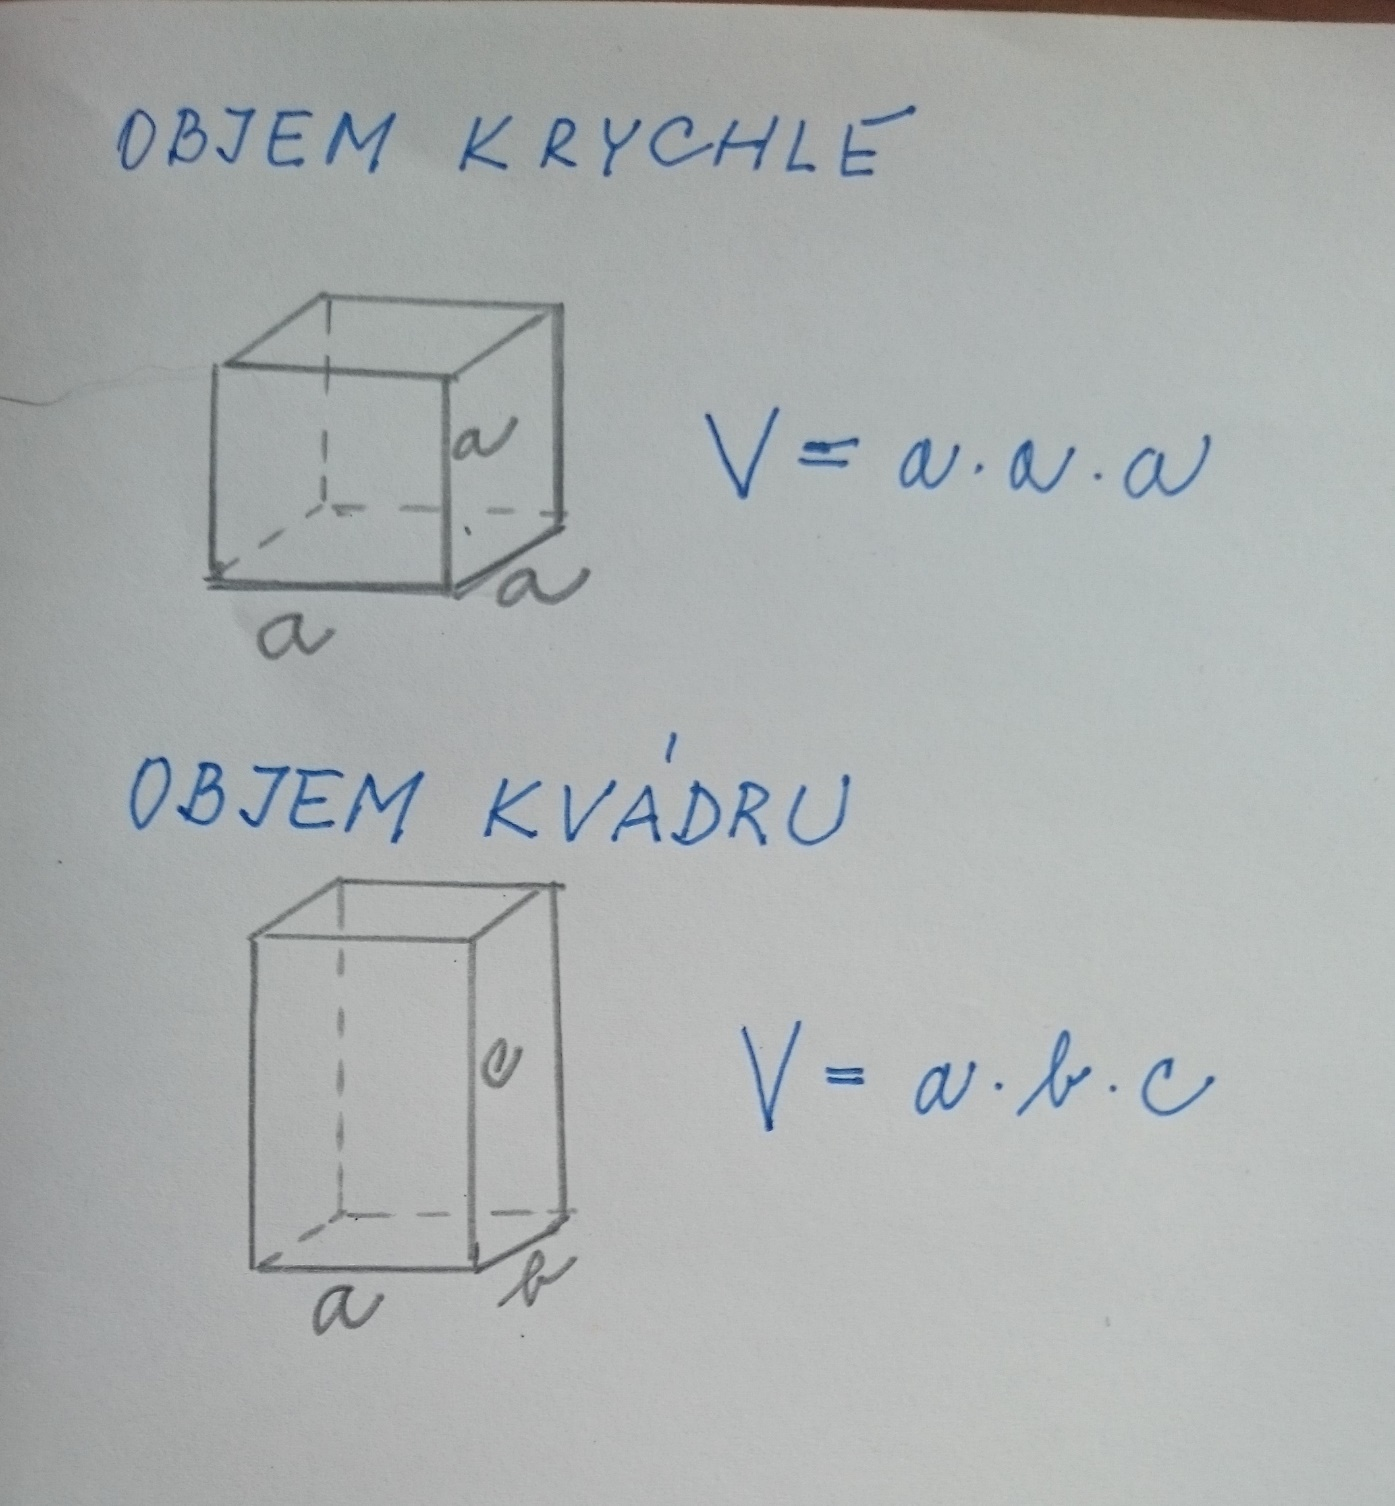 OBJEM KRYCHLE
a
V = a . a . a
a
a
OBJEM KVÁDRU
c
V = a . b . c
b
a